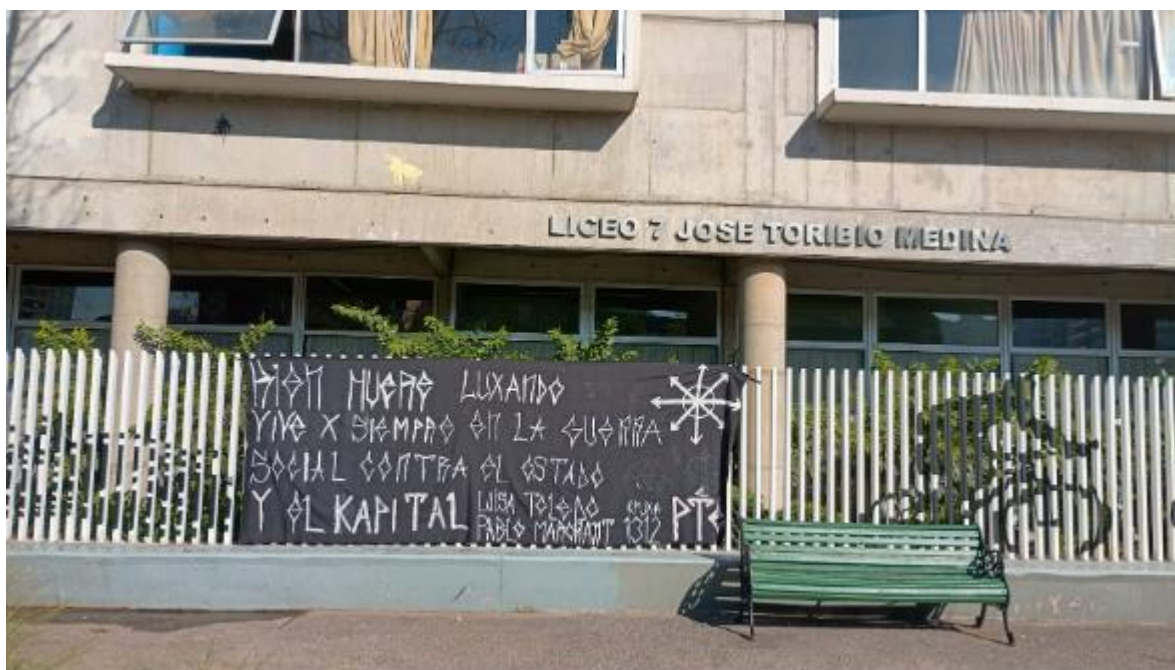 LICEO 7 JOSE TORIBIO MEDINA
KIEN MUERE LUXANDO
VIVE X SIEMPRE EN LA GUERRA
SOCIAL CONTRA EL ESTADO
Y EL KAPITAL
LUISA TOLEDO
PABLO MARCHANT
1312